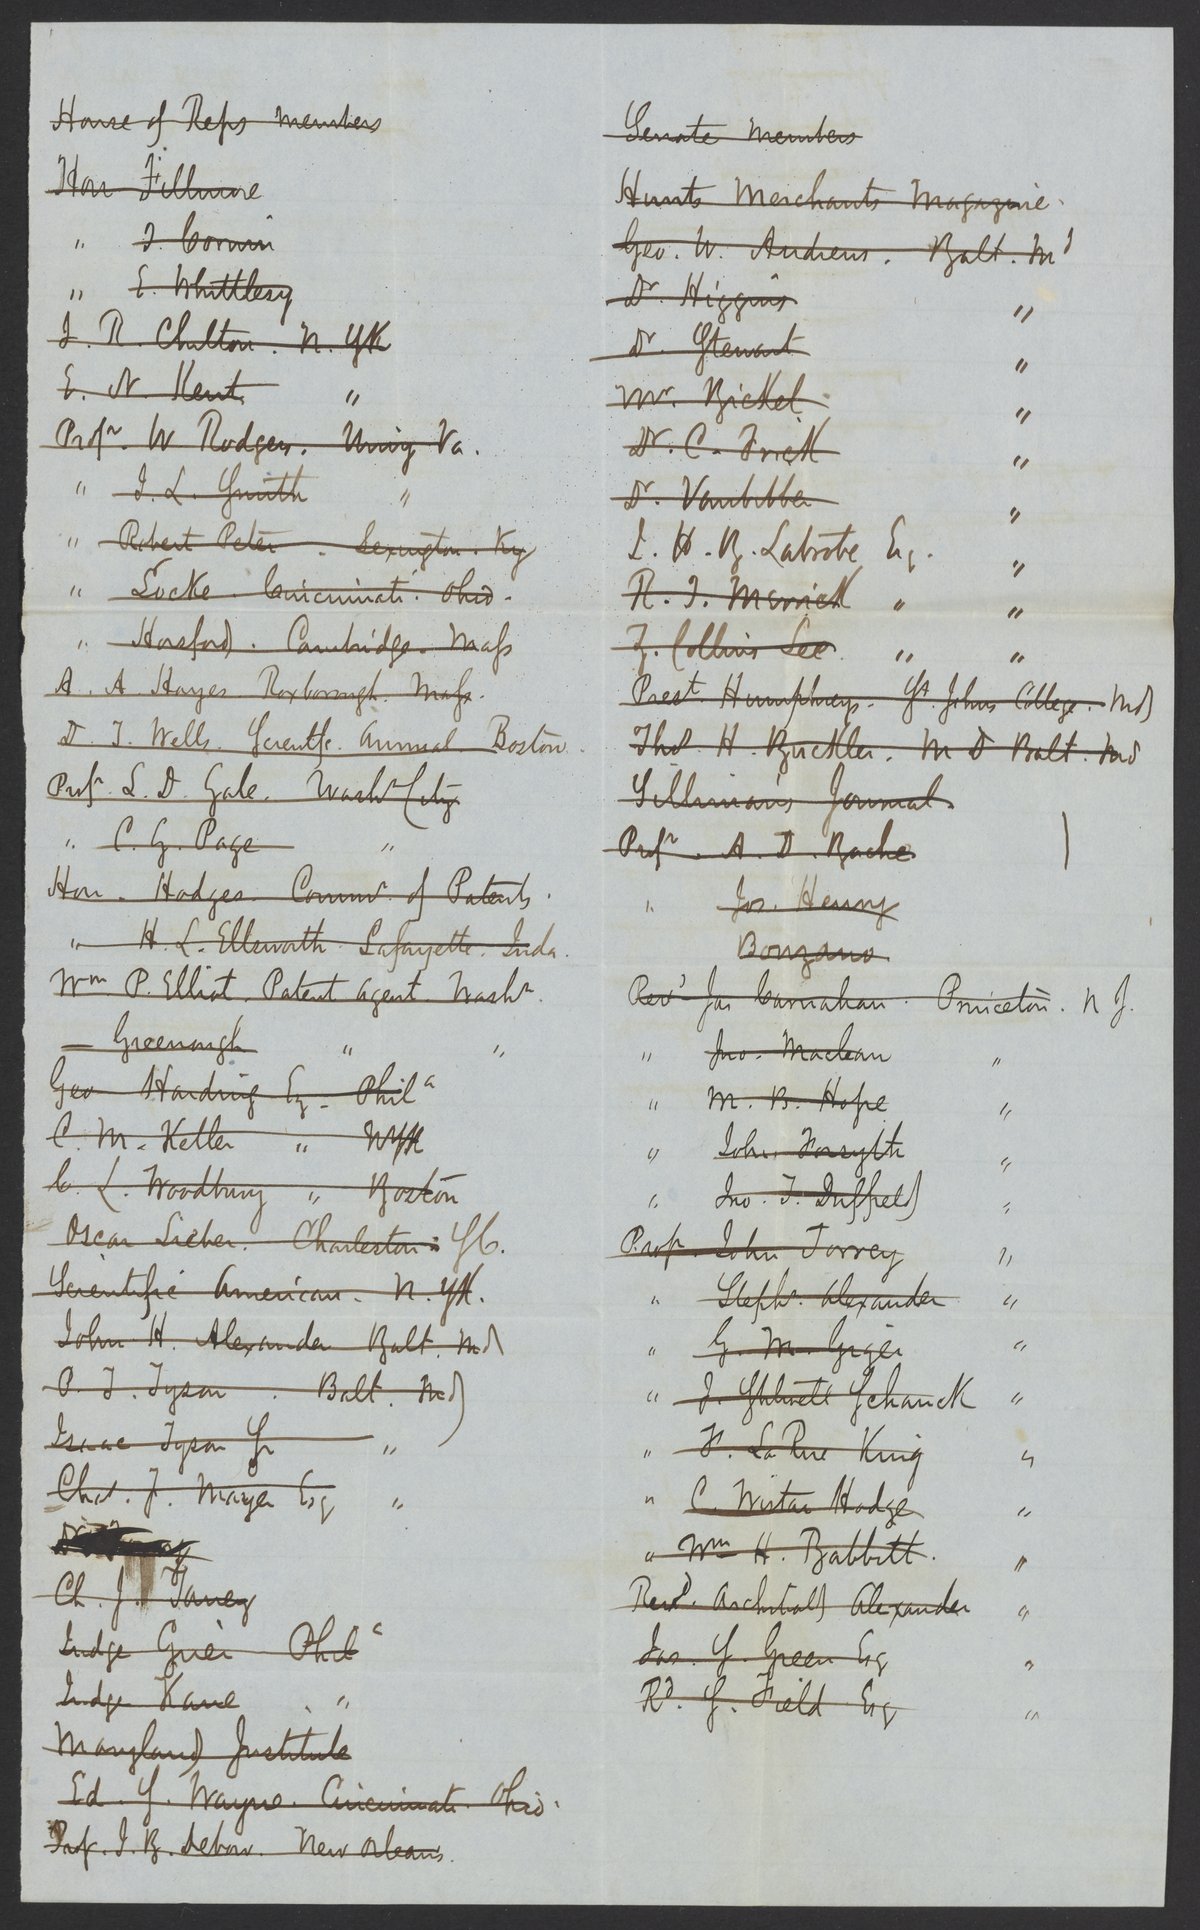 House of Reps members
Hon Fillmore
" T. Corwin
" E. Whittlesy
J. R. Chilton. N. Yk
E. N. Kent "
Profr. W Rodgers. Univy Va.
" J. L. Smith "
" Robert Peter. Lexington. Ky
" Locke. Cincinnati. Ohio.
" Horsford. Cambridge. Mass
A. A. Hayes Roxborough. Mass.
D. T. Wells. Scientfc. Annual Boston.
Profr. L. D. Gale. Washn City
" C. G. Page "
Hon. Hodges. Commr. of Patents.
" H. L. Ellsworth. Lafayette. Inda.
Wm P. Elliot. Patent agent. Washn.
— Greenough " "
Geo Harding Esq. Phila
C. M. Keller " NYK
C. L. Woodbury " Boston
Oscar Lieber. Charleston. SC.
Scientific American. N. YK.
John H. Alexander Balt. Md
P. T. Tyson. Balt. Md
Isaac Tyson Jr "
Chas. F. Mayer Esq "
Ch. J. Taney
Judge Grier Phila
Judge Kane "
Maryland Institute
Ed. S. Wayne. Cincinnati. Ohio.
Prof. J. B. Debow. New Orleans.
Senate members
Hunts Merchants Magazine.
Geo. W. Andrews. Balt. Md
Dr. Higgins "
Dr. Stewart "
Mr. Bickel "
Dr. C. Frick "
Dr. Vanbibber "
J. H. B. Latrobe Esq. "
R. T. Merrick " "
Z. Collins Lee " "
Prest. Humphreys. St. Johns College. Md
Thos. H. Buckler. M D Balt. Md
Sillimans Journal.
Profr. A. D. Bache
" Jos. Henry
Bonzano
Revd Jas Carnahan. Princeton. N J.
" Jno. Maclean "
" M. B. Hope "
" John Forsyth "
" Jno. T. Duffield "
Prof. John Torrey "
" Stephn. Alexander "
" G. M. Giger "
" J. Stillwell Schanck "
" F. La Rue King "
" C. Wistar Hodge "
" Wm H. Babbitt. "
Revd. Archibald Alexander "
Jas. S. Green Esq "
Rd. S. Field Esq "